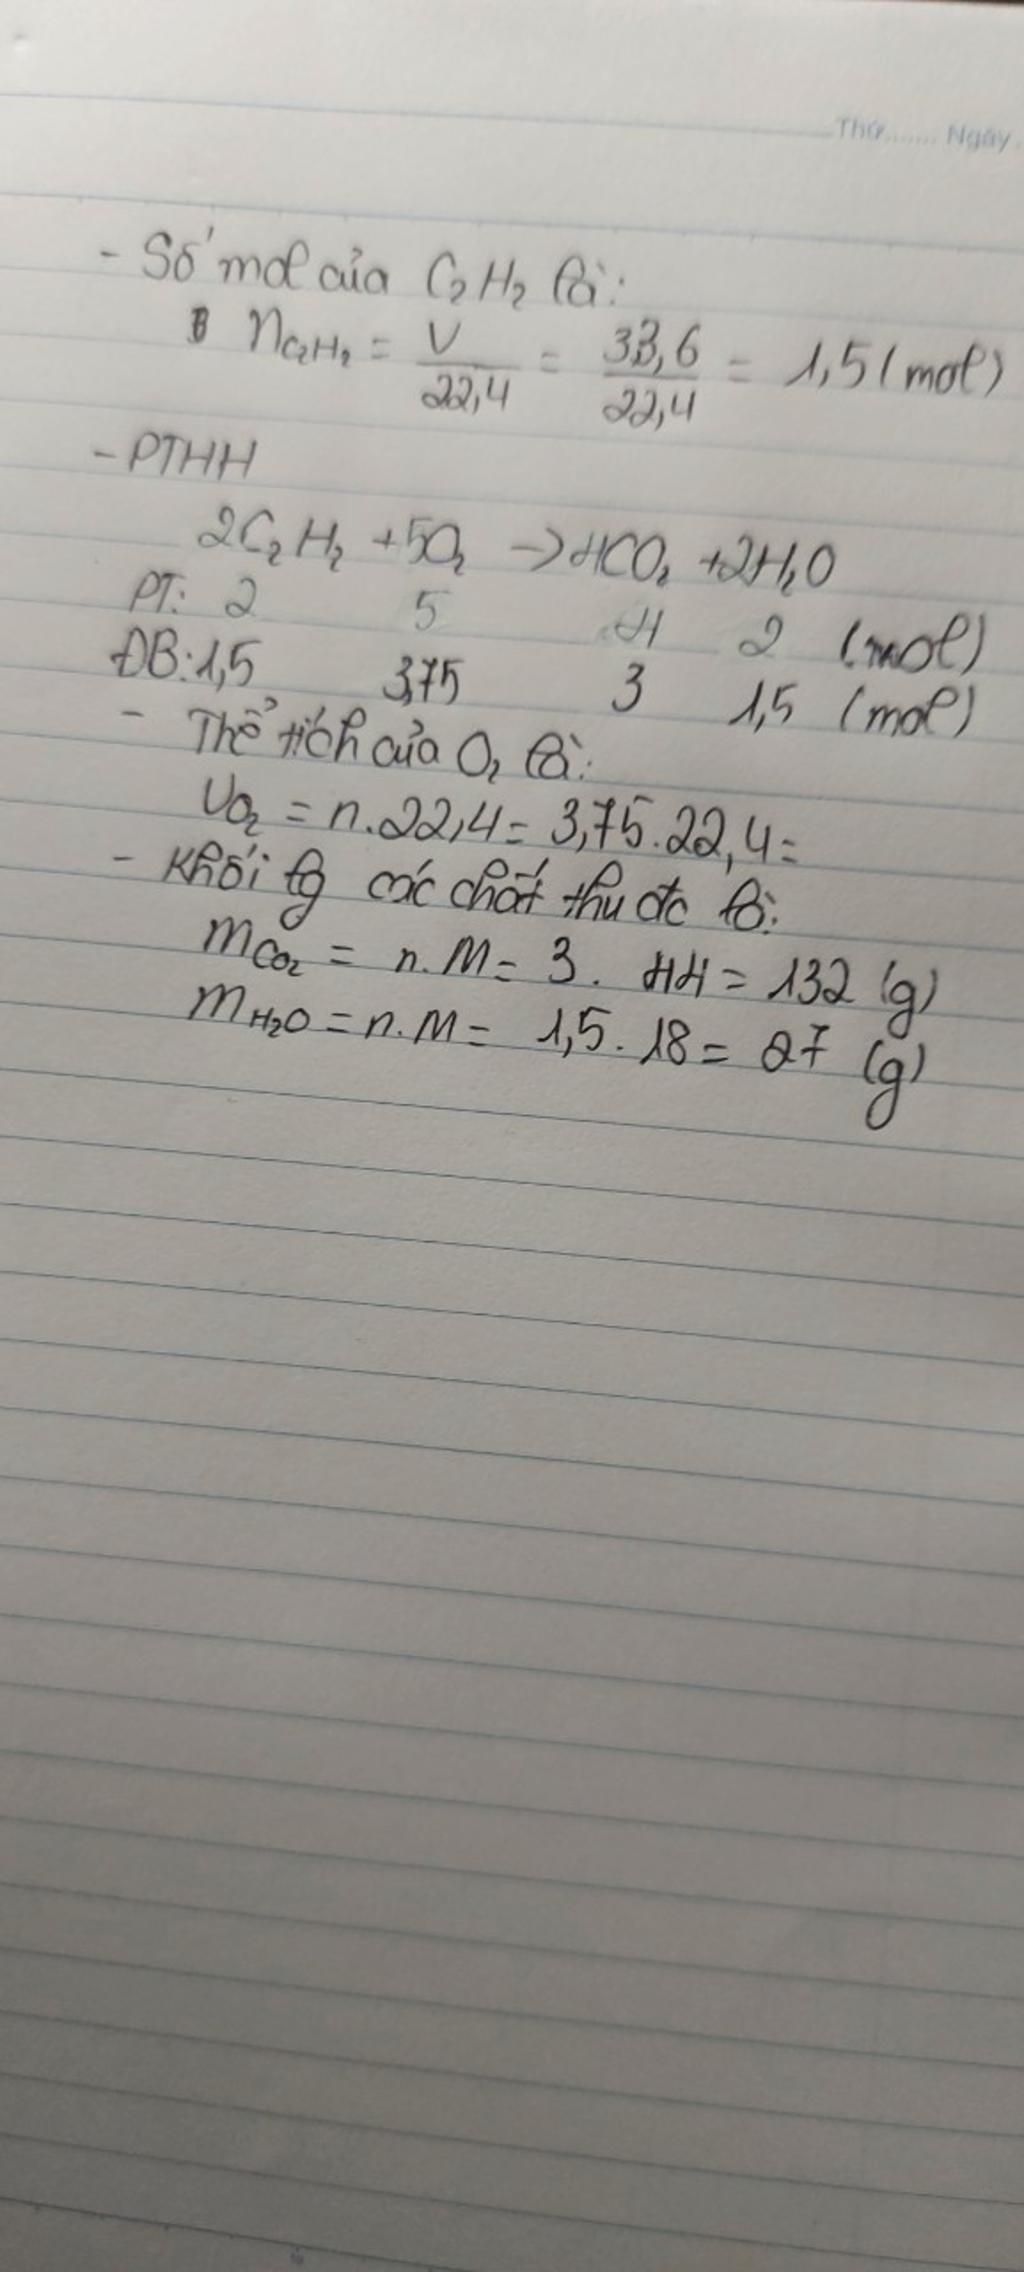 Thứ....... Ngày.
- Số mol của C₂H₂ là:
n C₂H₂ = V/22,4 = 33,6/22,4 = 1,5 (mol)
- PTHH
2C₂H₂ + 5O₂ → 4CO₂ + 2H₂O
PT: 2 5 4 2 (mol)
ĐB: 1,5 3,75 3 1,5 (mol)
- Thể tích của O₂ là:
VO₂ = n.22,4 = 3,75.22,4 =
- Khối lg các chất thu đc là:
mCO₂ = n.M = 3. 44 = 132 (g)
mH₂O = n.M = 1,5. 18 = 27 (g)